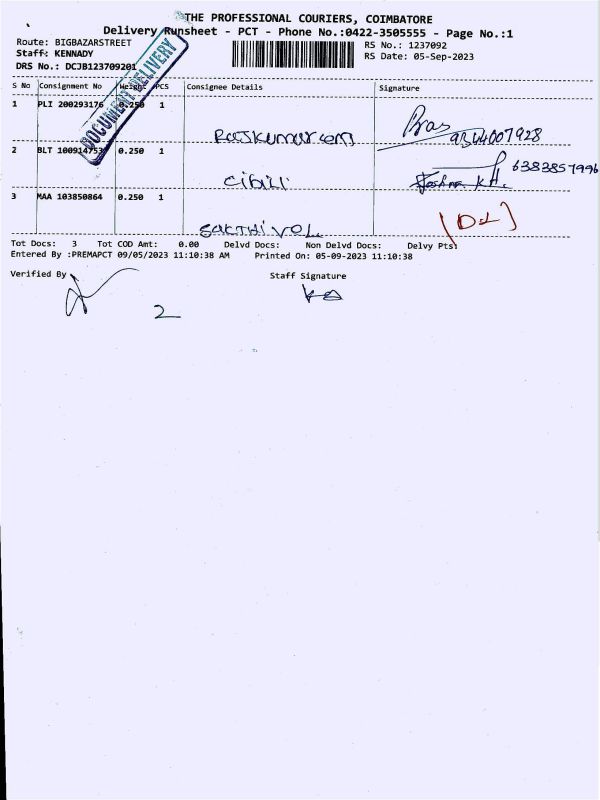 THE PROFESSIONAL COURIERS, COIMBATORE
Delivery Runsheet - PCT - Phone No.:0422-3505555 - Page No.:1
Route: BIGBAZARSTREET
RS No.: 1237092
Staff: KENNADY
RS Date: 05-Sep-2023
DRS No.: DCJB123709201
DOCUMENT DELIVERY
S No Consignment No Weight PCS Consignee Details Signature
1 PLI 200293176 0.250 1
Rajkumar 9344007928
2 BLT 100914753 0.250 1
6383857996
K.H.
3 MAA 103850864 0.250 1
[DL]
SAKTHIVEL
Tot Docs: 3 Tot COD Amt: 0.00 Delvd Docs: Non Delvd Docs: Delvy Pts:
Entered By :PREMAPCT 09/05/2023 11:10:38 AM Printed On: 05-09-2023 11:10:38
Verified By Staff Signature
2